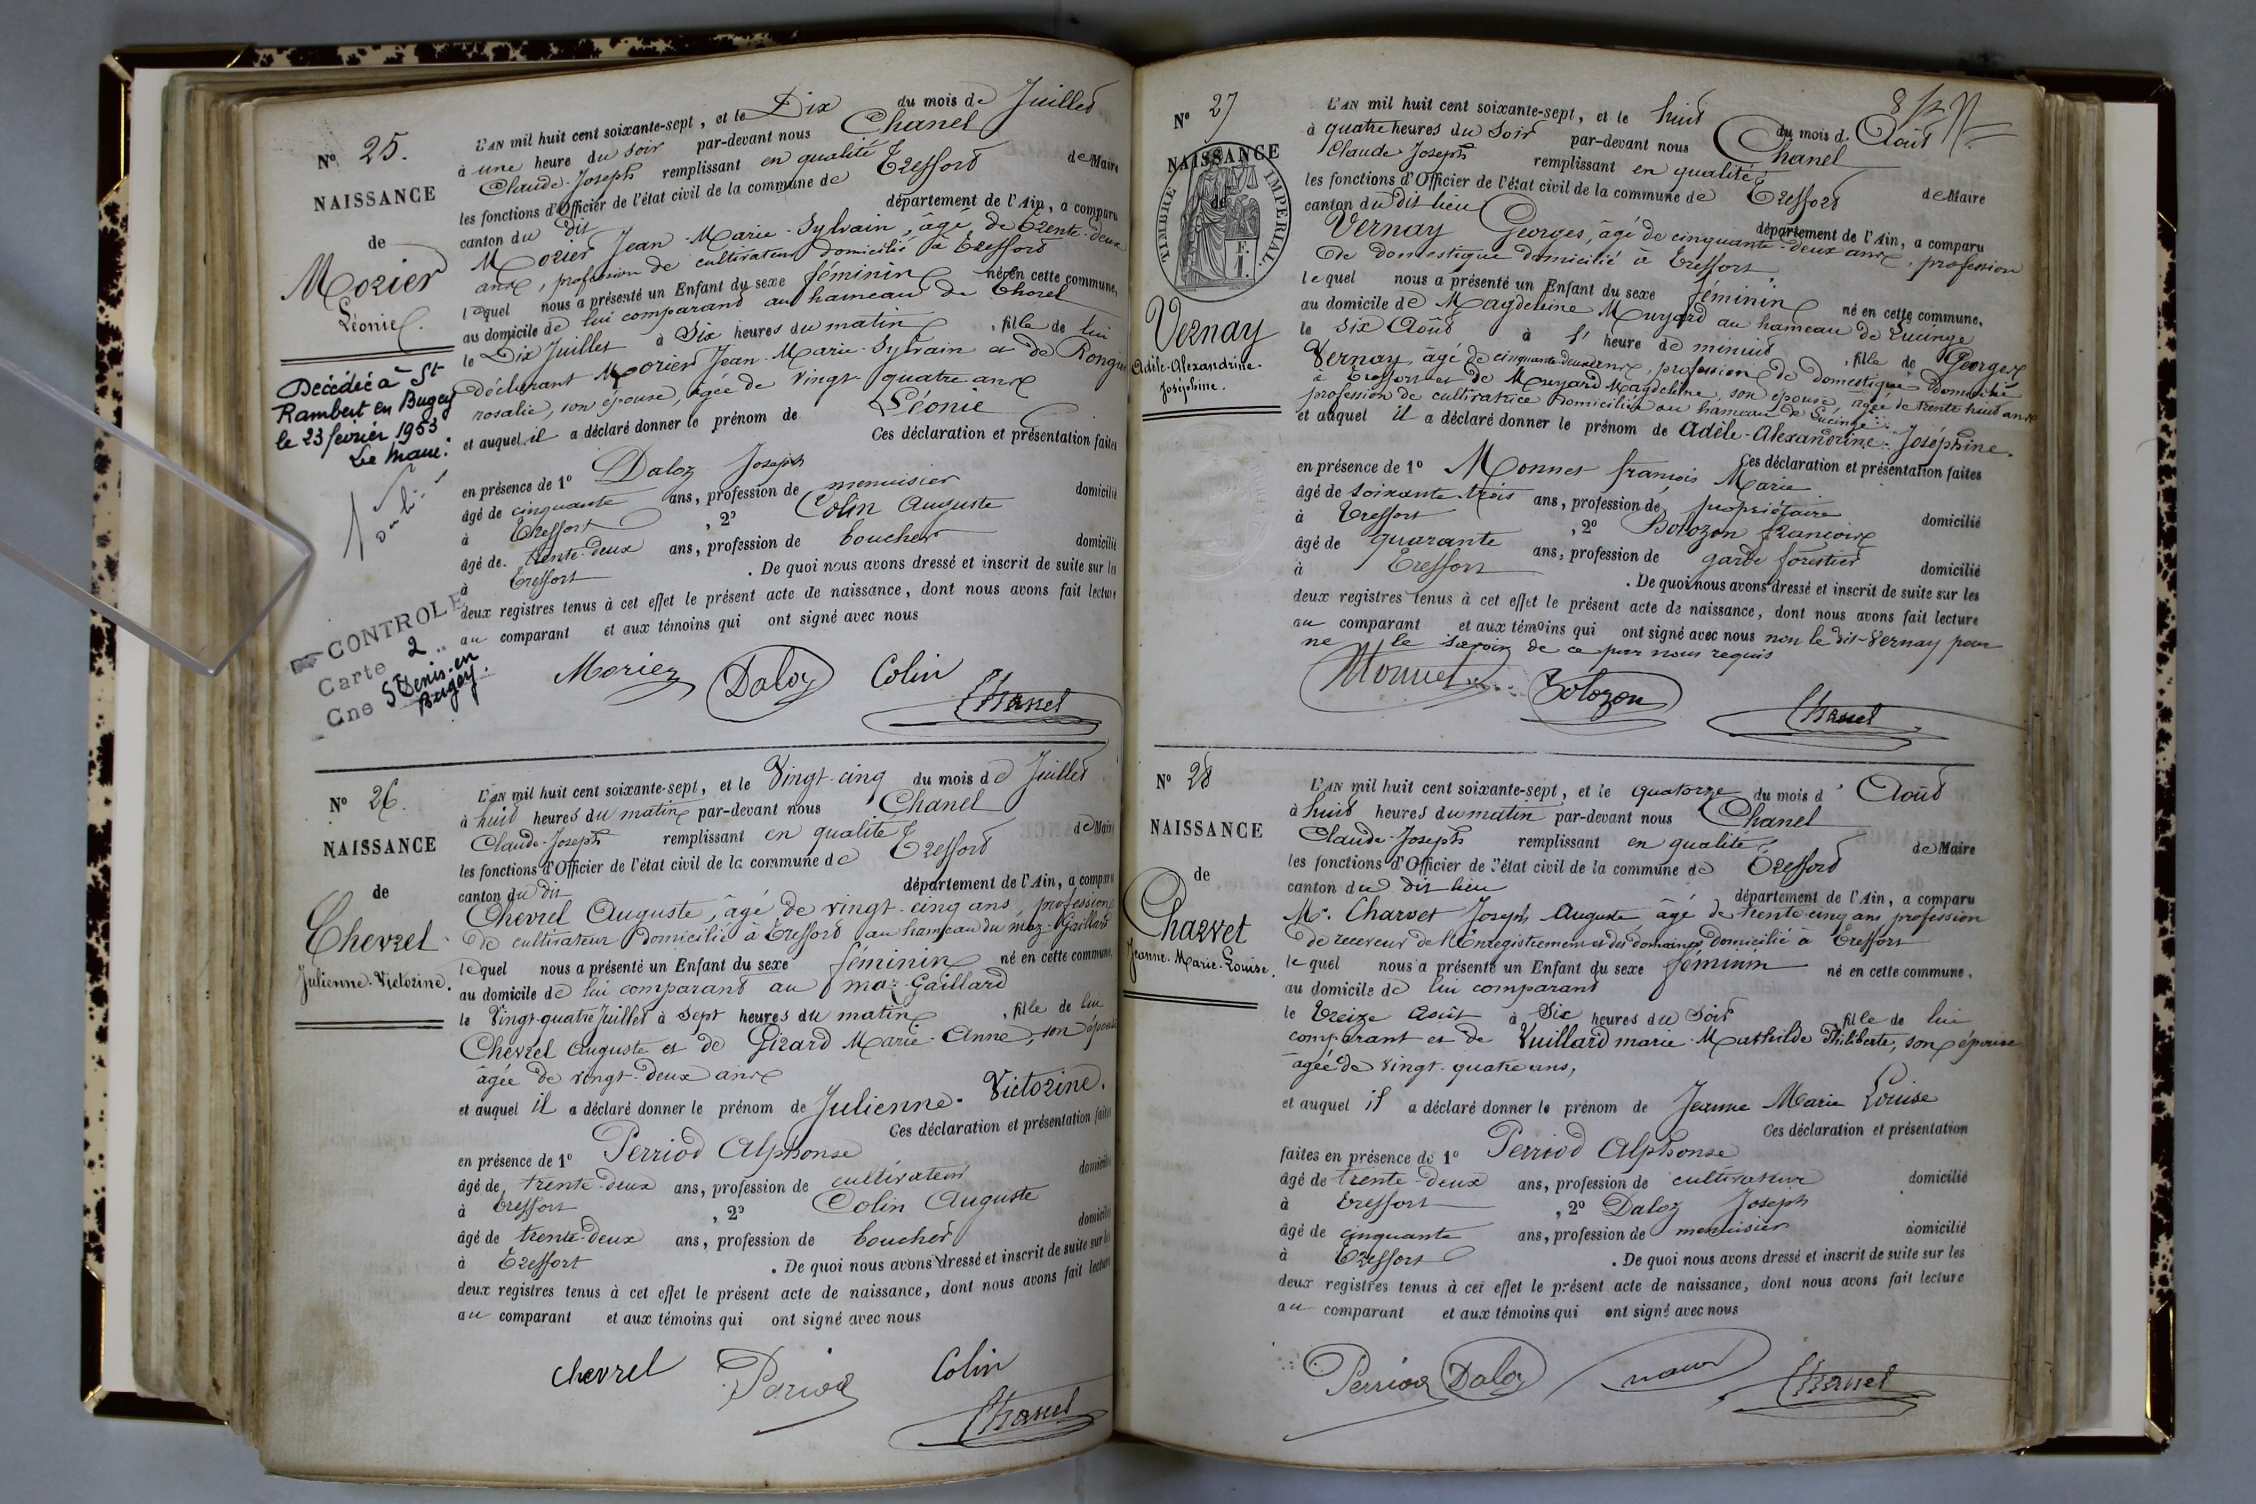 N° 25.
NAISSANCE
de
Morier
Léonie.
Décédée à St
Rambert en Bugey
le 23 février 1953
Le Maire:
CONTROLE
Carte 2
Cne St Denis-en
Bugey.
L'AN mil huit cent soixante-sept, et le Dix du mois de Juillet
à une heure du soir par-devant nous Chanel
Claude-Joseph remplissant en qualité de Maire
les fonctions d'Officier de l'état civil de la commune de Treffort
canton du dit département de l'Ain, a comparu
Morier Jean-Marie-Sylvain, âgé de trente-deux
ans, profession de cultivateur domicilié à Treffort
lequel nous a présenté un Enfant du sexe féminin né en cette commune,
au domicile de lui comparant au hameau de
le Dix Juillet à Six heures du matin, fille de lui
déclarant Morier Jean-Marie-Sylvain et de
rosalie, son épouse, âgée de vingt-quatre ans
et auquel il a déclaré donner le prénom de Léonie
Ces déclaration et présentation faites
en présence de 1° Daloz Joseph
âgé de cinquante ans, profession de menuisier domicilié
à Treffort, 2° Colin Auguste
âgé de trente-deux ans, profession de boucher domicilié
à Treffort. De quoi nous avons dressé et inscrit de suite sur les
deux registres tenus à cet effet le présent acte de naissance, dont nous avons fait lecture
au comparant et aux témoins qui ont signé avec nous
Morier Daloz Colin
Chanel
N° 26.
NAISSANCE
de
Chevrel
Julienne-Victorine.
L'AN mil huit cent soixante-sept, et le Vingt-cinq du mois de Juillet
à huit heures du matin par-devant nous Chanel
Claude-Joseph remplissant en qualité de Maire
les fonctions d'Officier de l'état civil de la commune de Treffort
canton du dit département de l'Ain, a comparu
Chevrel Auguste, âgé de vingt-cinq ans, profession
de cultivateur domicilié à Treffort au hameau du maz-Gaillard
lequel nous a présenté un Enfant du sexe féminin né en cette commune,
au domicile de lui comparant au maz-Gaillard
le Vingt-quatre Juillet à Sept heures du matin, fille de lui
Chevrel Auguste et de Girard Marie-Anne, son épouse
âgée de vingt-deux ans
et auquel il a déclaré donner le prénom de Julienne-Victorine.
Ces déclaration et présentation faites
en présence de 1° Perriod Alphonse
âgé de trente-deux ans, profession de cultivateur domicilié
à Treffort, 2° Colin Auguste
âgé de trente-deux ans, profession de boucher domicilié
à Treffort. De quoi nous avons dressé et inscrit de suite sur les
deux registres tenus à cet effet le présent acte de naissance, dont nous avons fait lecture
au comparant et aux témoins qui ont signé avec nous
chevrel Perriod Colin
Chanel
N° 27
NAISSANCE
de
TIMBRE IMPERIAL
F. 1.
Vernay
Adèle-Alexandrine-
Joséphine.
L'AN mil huit cent soixante-sept, et le huit du mois d' Août
à quatre heures du Soir par-devant nous Chanel
Claude Joseph remplissant en qualité de Maire
les fonctions d'Officier de l'état civil de la commune de Treffort
canton du dit lieu département de l'Ain, a comparu
Vernay Georges, âgé de cinquante-deux ans, profession
de domestique domicilié à Treffort
lequel nous a présenté un Enfant du sexe féminin né en cette commune,
au domicile de Magdeleine Muyard au hameau de Lucinge
le Six Août à l' heure de minuit, fille de Georges
Vernay, âgé de cinquante-deux ans, profession de domestique domicilié
à Treffort et de Muyard Magdeleine, son épouse, âgée de trente huit ans
profession de cultivatrice domiciliée au hameau de Lucinge
et auquel il a déclaré donner le prénom de Adèle-Alexandrine-Joséphine.
Ces déclaration et présentation faites
en présence de 1° Monnet françois Marie
âgé de soixante-trois ans, profession de propriétaire domicilié
à Treffort, 2° Bolozon françois
âgé de quarante ans, profession de garde forestier domicilié
à Treffort. De quoi nous avons dressé et inscrit de suite sur les
deux registres tenus à cet effet le présent acte de naissance, dont nous avons fait lecture
au comparant et aux témoins qui ont signé avec nous non le dit-Vernay pour
ne le savoir de ce par nous requis
Monnet Bolozon
Chanel
N° 28
NAISSANCE
de
Charvet
Jeanne-Marie-Louise.
L'AN mil huit cent soixante-sept, et le quatorze du mois d' Août
à huit heures du matin par-devant nous Chanel
Claude-Joseph remplissant en qualité de Maire
les fonctions d'Officier de l'état civil de la commune de Treffort
canton du dit lieu département de l'Ain, a comparu
Mr. Charvet Joseph Auguste, âgé de trente-cinq ans profession
de receveur de l'Enregistrement et des domaines domicilié à Treffort
lequel nous a présenté un Enfant du sexe féminin né en cette commune,
au domicile de lui comparant
le Treize Août à Six heures du Soir fille de lui
comparant et de Vuillard marie-Mathilde Philiberte, son épouse
âgée de vingt-quatre ans,
et auquel il a déclaré donner le prénom de Jeanne Marie Louise
Ces déclaration et présentation
faites en présence de 1° Perriod Alphonse
âgé de trente-deux ans, profession de cultivateur domicilié
à Treffort, 2° Daloz Joseph
âgé de cinquante ans, profession de menuisier domicilié
à Treffort. De quoi nous avons dressé et inscrit de suite sur les
deux registres tenus à cet effet le présent acte de naissance, dont nous avons fait lecture
au comparant et aux témoins qui ont signé avec nous
Perriod Daloz Chanel